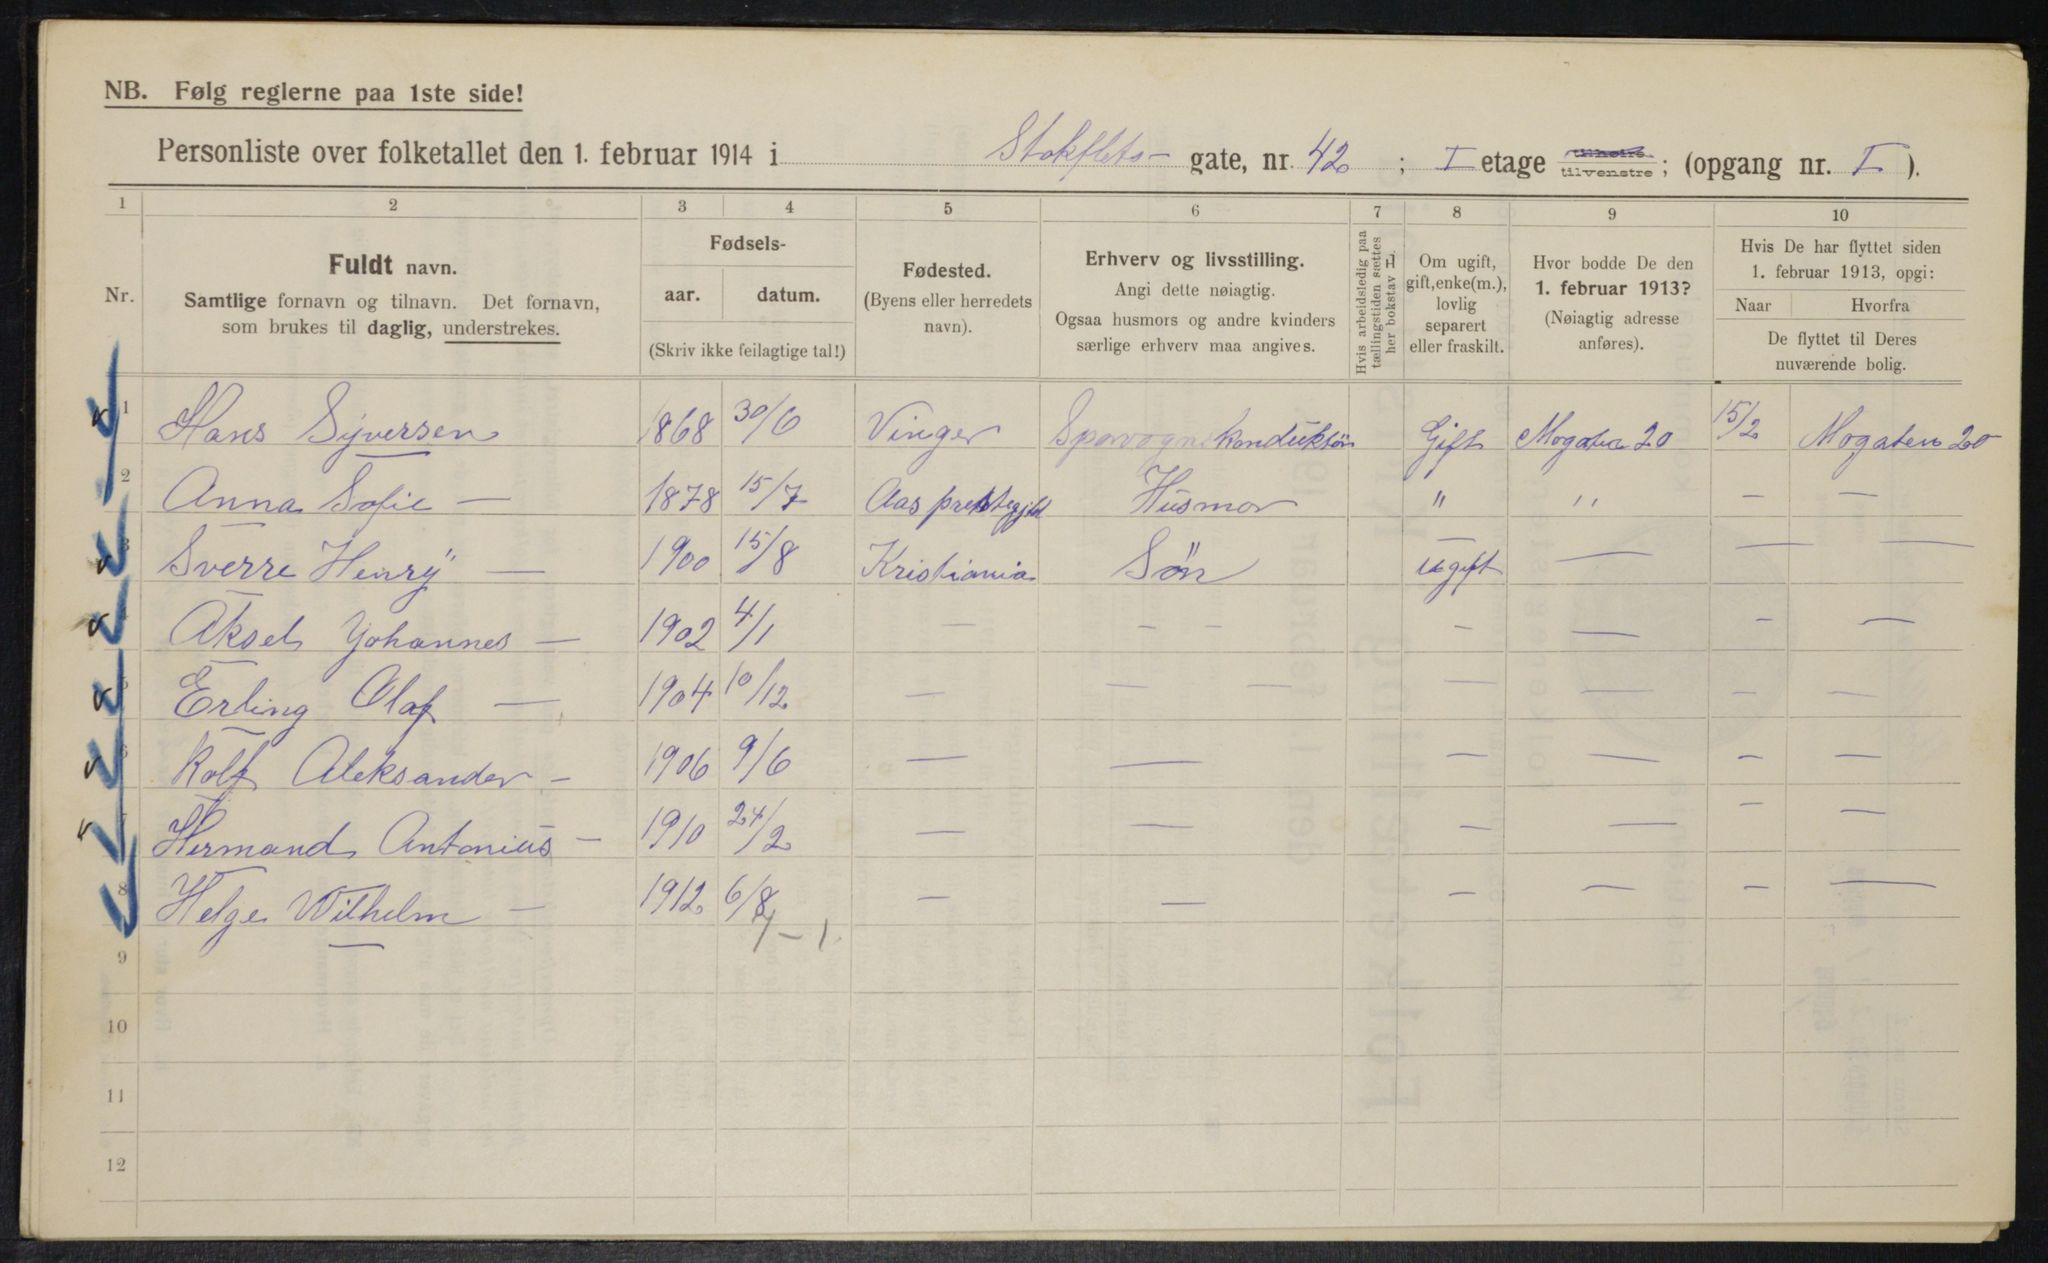 NB. Følg reglerne paa 1ste side!
Personliste over folketallet den 1. februar 1914 i Stokflets- gate, nr. 42 ; I etage tilhøire tilvenstre ; (opgang nr. I ).
1 2 3 4 5 6 7 8 9 10
Nr.
Fuldt navn.
Samtlige fornavn og tilnavn. Det fornavn,
som brukes til daglig, understrekes.
Fødsels-
aar. datum.
(Skriv ikke feilagtige tal!)
Fødested.
(Byens eller herredets
navn).
Erhverv og livsstilling.
Angi dette nøiagtig.
Ogsaa husmors og andre kvinders
særlige erhverv maa angives.
Hvis arbeidsledig paa
tællingstiden sættes
her bokstav L.
Om ugift,
gift, enke(m.),
lovlig
separert
eller fraskilt.
Hvor bodde De den
1. februar 1913?
(Nøiagtig adresse
anføres).
Hvis De har flyttet siden
1. februar 1913, opgi:
Naar Hvorfra
De flyttet til Deres
nuværende bolig.
1 Hans Syversen 1868 30/6 Vinger Sporvognskonduktør Gift Mogaten 20 15/2 Mogaten 20
2 Anna Sofie — 1878 15/7 Aas prestegjeld Husmor " " — —
3 Sverre Henry — 1900 15/8 Kristiania Søn ugift — — —
4 Aksel Johannes — 1902 4/1 — — — — — — —
5 Erling Olaf — 1904 10/12 — — — — — — —
6 Rolf Aleksander — 1906 9/6 — — — — — —
7 Hermand Antonius — 1910 24/2 — — — — — —
8 Helge Wilhelm — 1912 6/8 — — — — — —
7 – 1
9
10
11
12